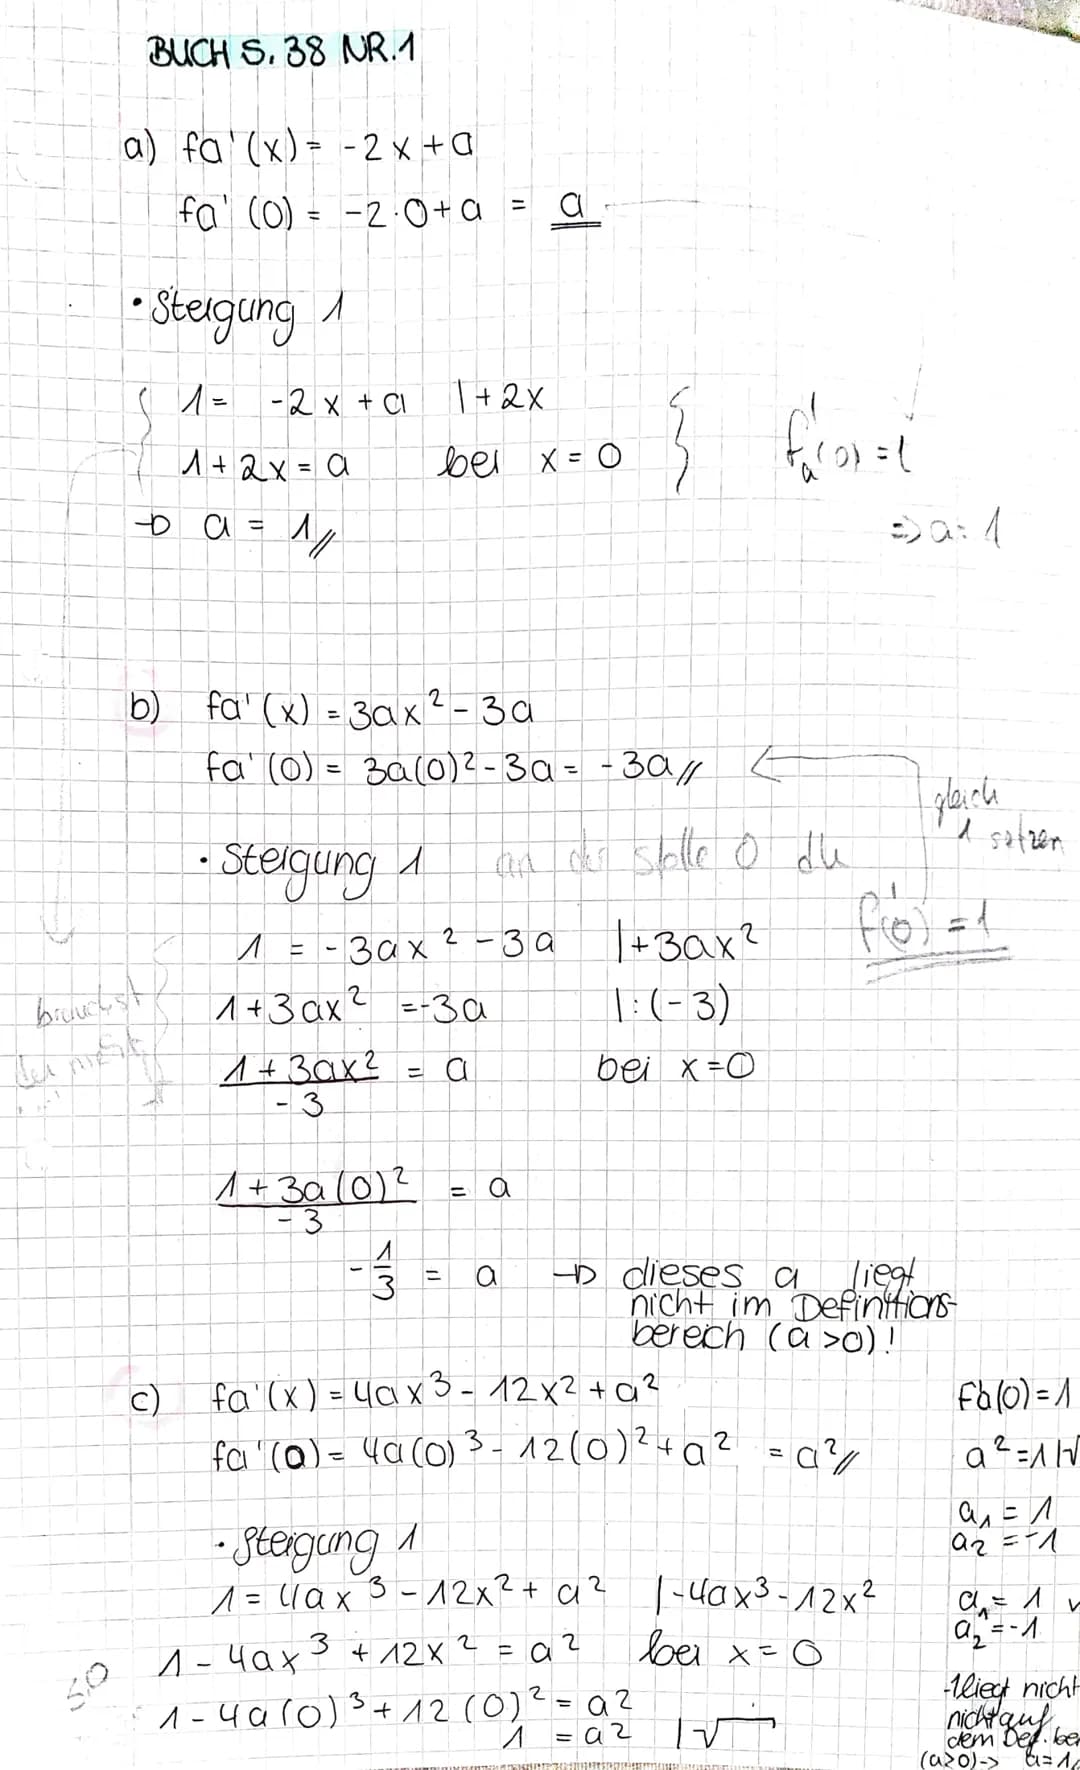 BUCH S. 38 NR.1
a) fa'(x) = -2x + a
fa' (0) = -2·0 + a = a
• Steigung 1
1 = -2x + a |+2x
1 + 2x = a bei x = 0
fa'(0) = 1
→ a = 1
=> a = 1
b) fa'(x) = 3ax² - 3a
fa'(0) = 3a(0)² - 3a = -3a
gleich
1 setzen
• Steigung 1 an der stelle 0 dh
f'(0) = 1
1 = -3ax² - 3a |+3ax²
1 + 3ax² = -3a |:(-3)
brauchst
du nicht
1 + 3ax² / -3 = a bei x=0
1 + 3a(0)² / -3 = a
-1/3 = a → dieses a liegt
nicht im Definitions-
bereich (a>0)!
c) fa'(x) = 4ax³ - 12x² + a²
fa'(0) = 4a(0)³ - 12(0)² + a² = a²
• Steigung 1
1 = 4ax³ - 12x² + a² |-4ax³-12x²
1 - 4ax³ + 12x² = a² bei x = 0
1 - 4a(0)³ + 12(0)² = a²
1 = a² |√
fa'(0) = 1
a² = 1 |√
a₁ = 1
a₂ = -1
a₁ = 1 ✓
a₂ = -1
-1 liegt nicht
nicht auf
dem Def.
(a≥0)-> a=1